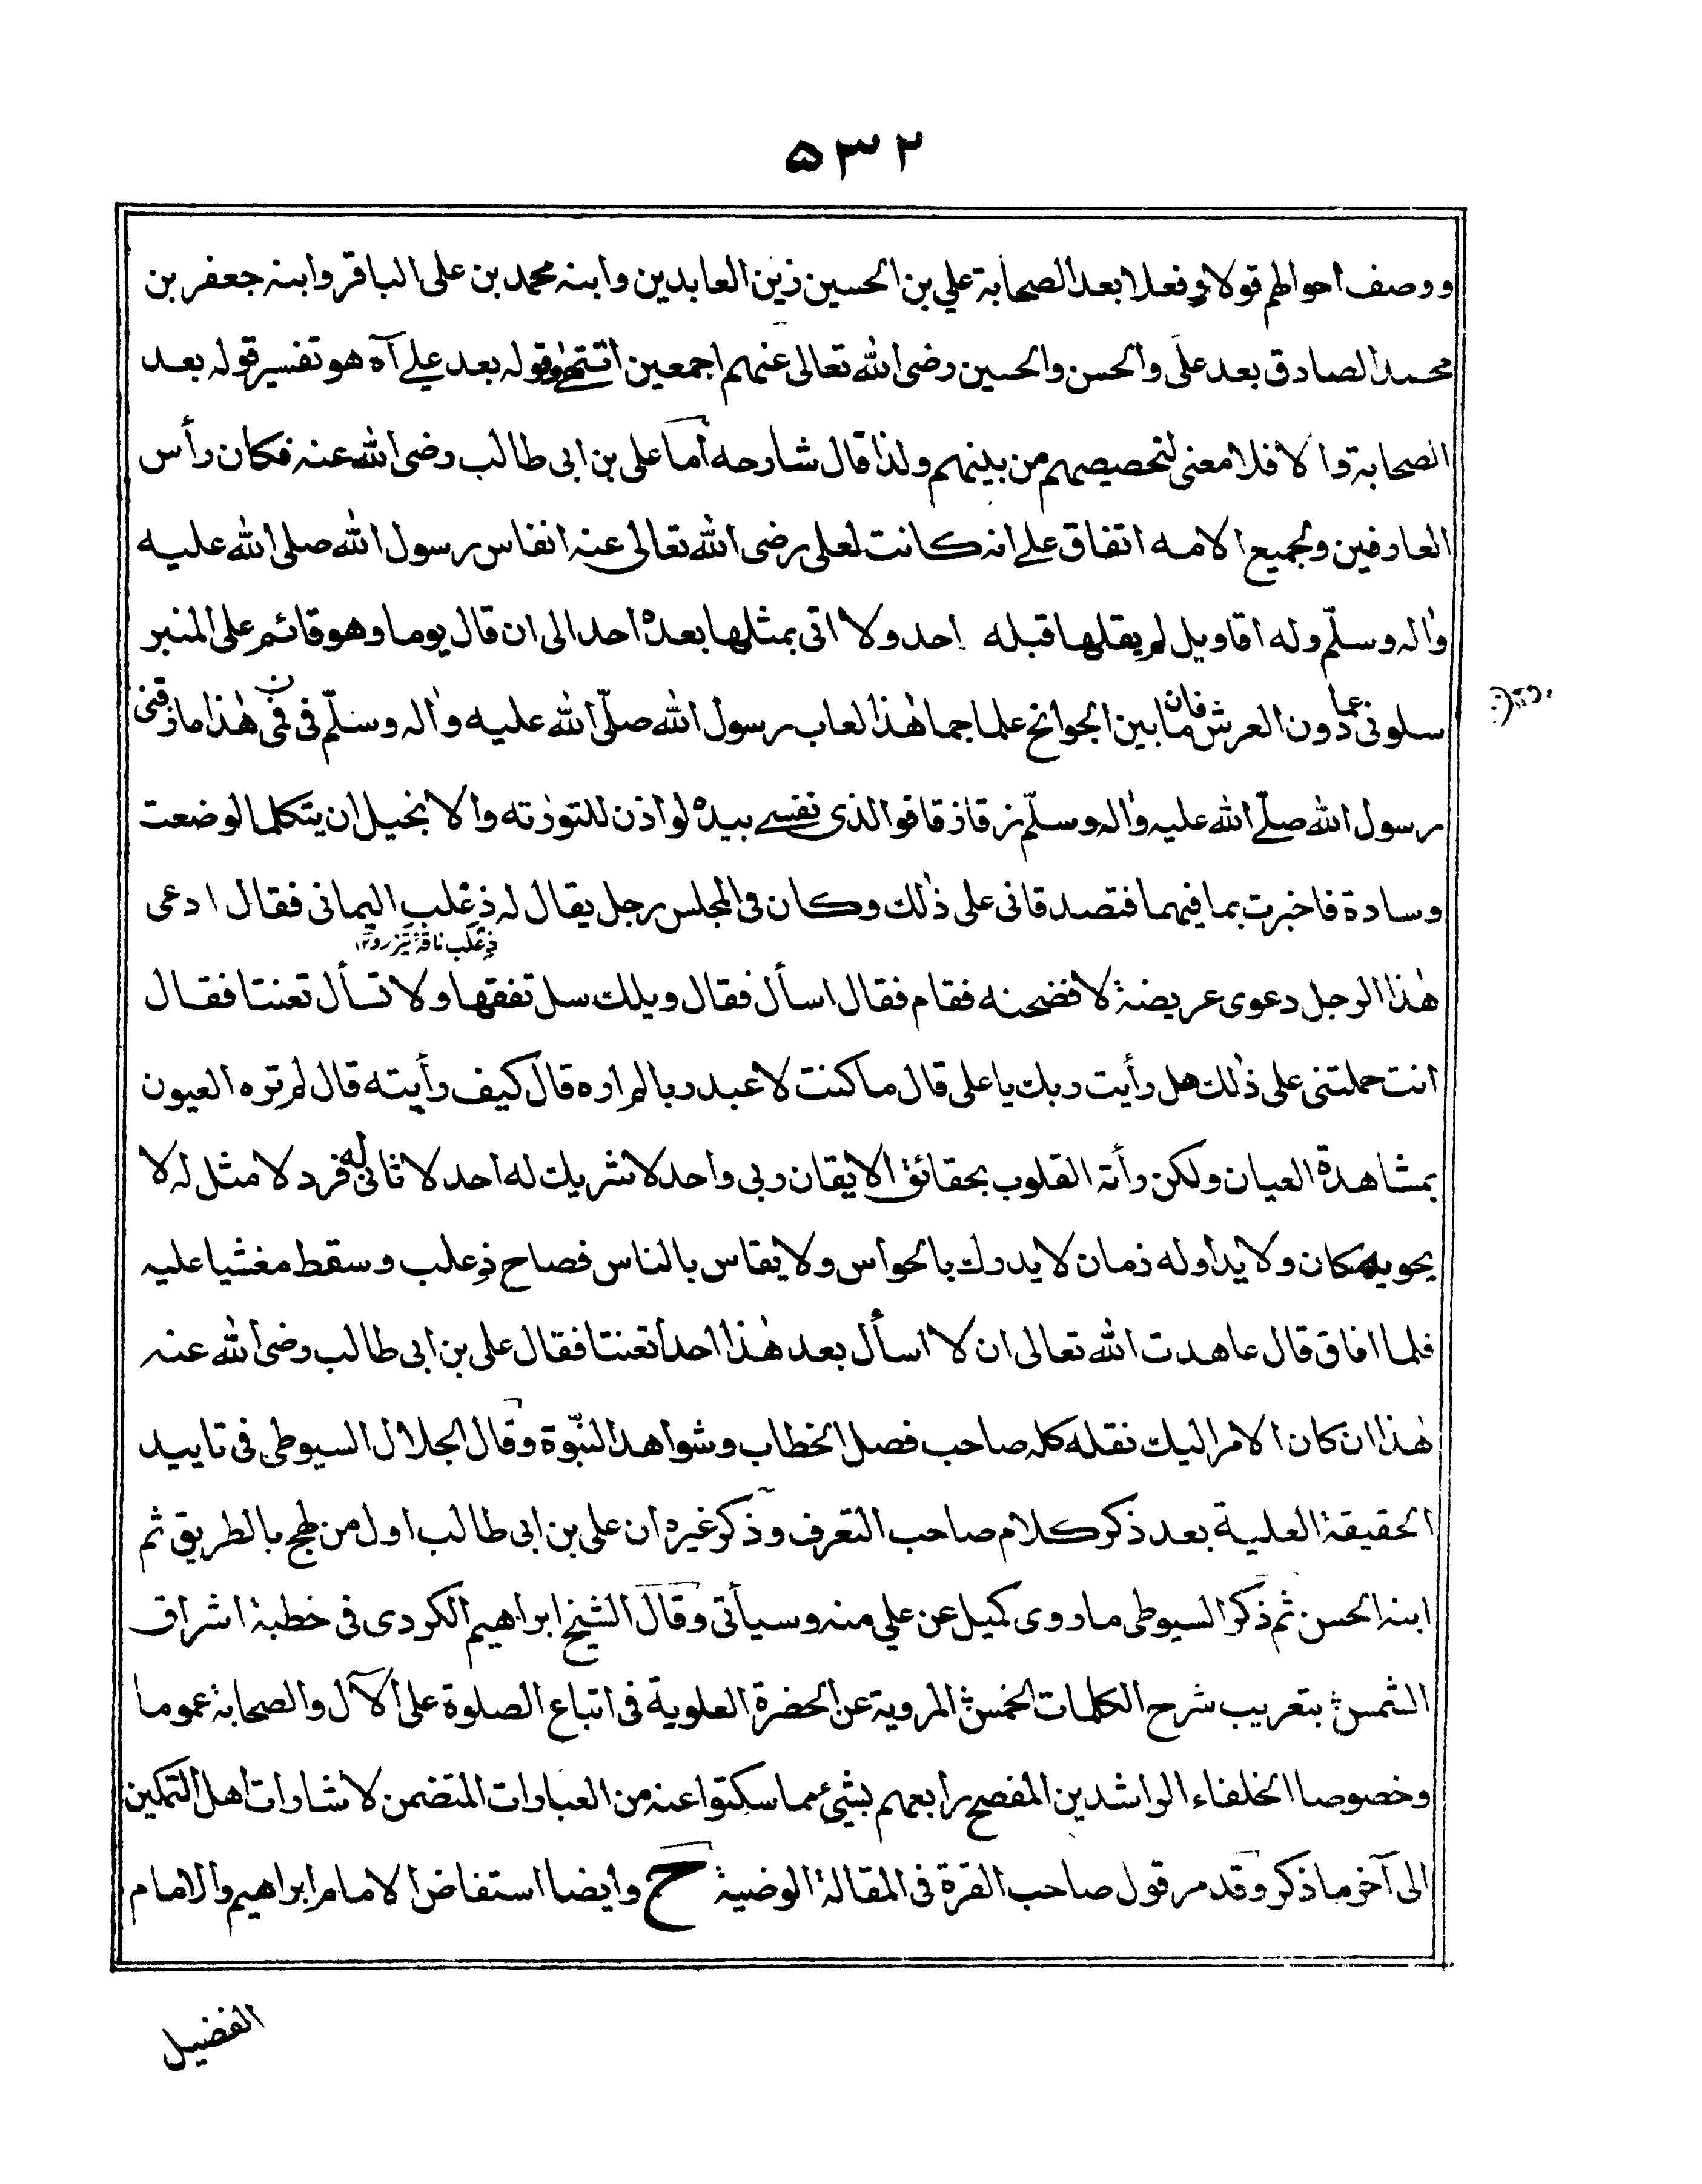 ۵۳۲
ووصف احوالهم قولا وفعلا بعد الصحابة علي بن الحسين زين العابدين وابنه محمد بن على الباقر وابنه جعفر بن
محمد الصادق بعد على والحسن والحسين رضى الله تعالى عنهم اجمعين انتهى وقوله بعد علے آه هو تفسير قوله بعد
الصحابة والا فلا معنى لتخصيصهم من بينهم ولذا قال شارحه أما على بن ابى طالب رضى الله عنه فكان رأس
العارفين ولجميع الامه اتفاق علے انه كانت لعلى رضى الله تعالى عنه انفاس رسول الله صلى الله عليه
واٰله وسلّم وله اقاويل لم يقلها قبله احد ولا اتى بمثلها بعده احد الى ان قال يوما وهو قائم على المنبر
سلونى عما دون العرش فان ما بين الجوانح علما جما هٰذا لعاب رسول الله صلّى الله عليه واٰله وسلّم فى فمى هٰذا ما زقنى
رسول الله صلّے الله عليه واٰله وسلّم زقا زقا فو الذى نفسے بيده لو اذن للتورٰته والانجيل ان يتكلما لوضعت
وسادة فاخبرت بما فيهما فتصدقانى على ذٰلك وكان فى المجلس رجل يقال له ذِعْلِب اليمانى فقال ادعى
ذِعْلَب ناقۂ تیزرو ۱۲
هٰذا الرجل دعوى عريضة لافضحنه فقام فقال اسأل فقال ويلك سل تفقها ولا تسأل تعنتا فقال
انت حملتنى على ذٰلك هل رأيت ربك يا على قال ما كنت لاعبد ربا لم اره قال كيف رأيته قال لم تره العيون
بمشاهدة العيان ولكن رأته القلوب بحقائق الايقان ربى واحد لا شريك له احد لا ثانى له فرد لا مثل له لا
يحويه مكان ولا يداوله زمان لا يدرك بالحواس ولا يقاس بالناس فصاح ذعلب وسقط مغشيا عليه
فلما افاق قال عاهدت الله تعالى ان لا اسأل بعد هٰذا احدا تعنتا فقال على بن ابى طالب رضى الله عنه
هٰذا ان كان الامر اليك نقله كله صاحب فصل الخطاب وشواهد النبّوة وقال الجلال السيوطى فى تاييد
الحقيقة العلية بعد ذكر كلام صاحب التعرف وذكر غيره ان على بن ابى طالب اول من لهج بالطريق ثم
ابنه الحسن ثم ذكر السيوطى ما روى كميل عن علي منه وسيأتى وقال الشيخ ابراهيم الكردى فى خطبة اشراق
الشمس بتعريب شرح الكلمات الخمس المروية عن الحضرة العلوية فى اتباع الصلوة على الآل والصحابة عموما
وخصوصا الخلفاء الراشدين المفصح رابعهم بشئ مما سكتوا عنه من العبارات المتضمن لاشارات اهل التمكين
الى آخر ما ذكر وقد مر قول صاحب القرة فى المقالة الوضية ح وايضا استفاض الامام ابراهيم والامام
الفضيل